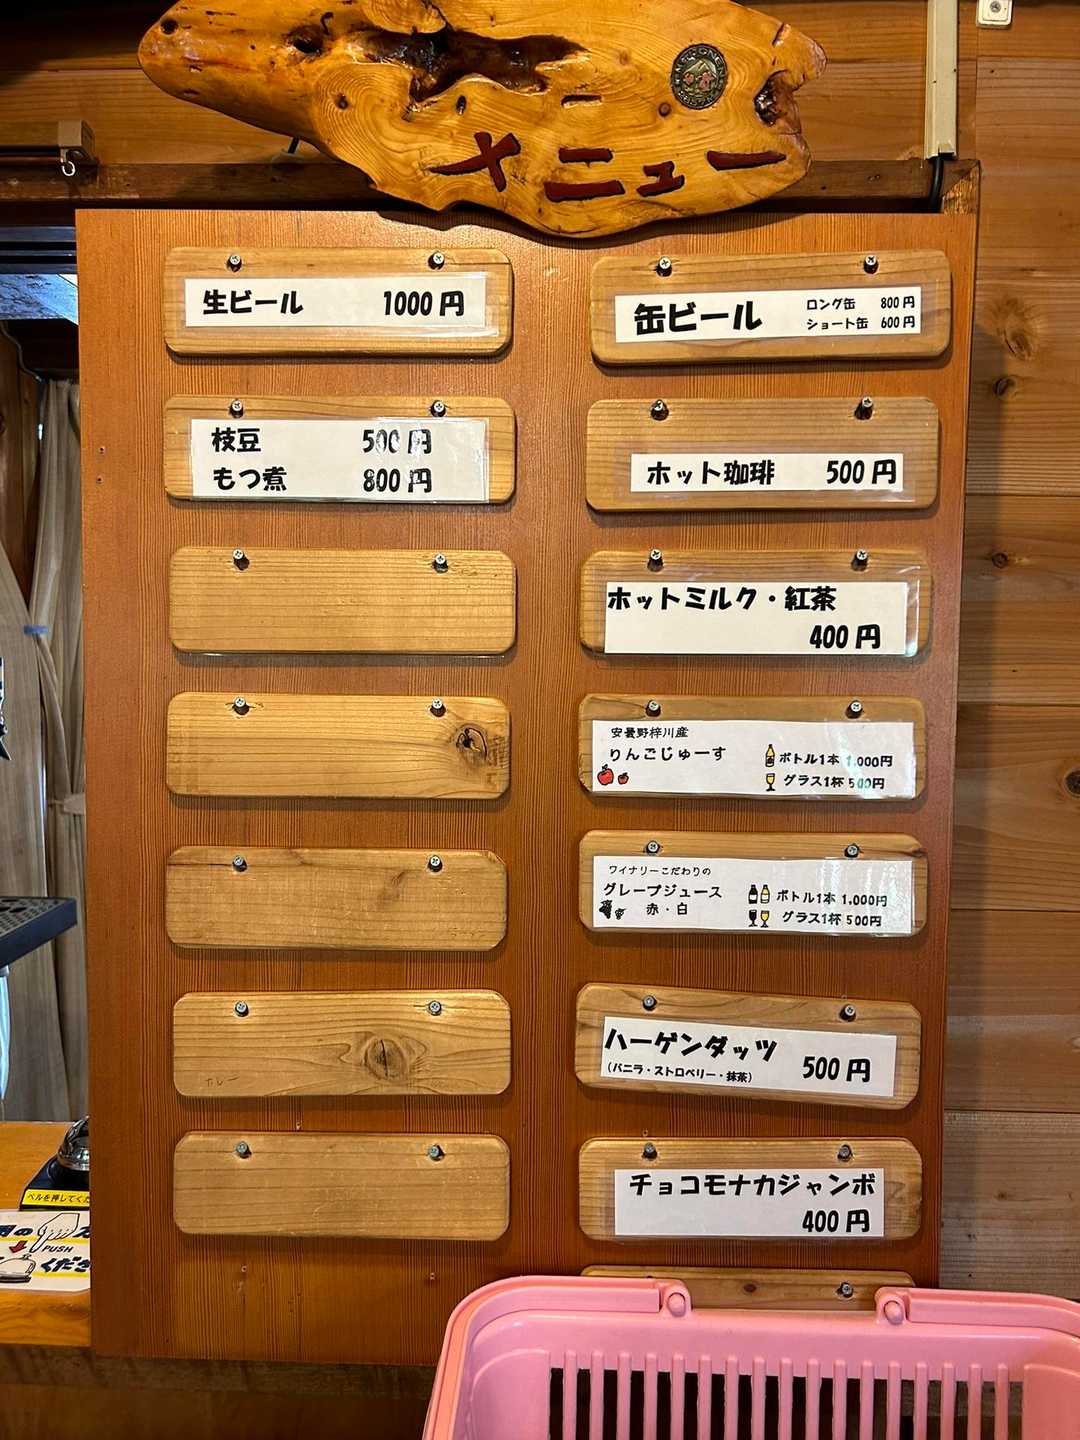 メニュー
生ビール 1000円
枝豆 500円
もつ煮 800円
カレー
缶ビール ロング缶 800円
ショート缶 600円
ホット珈琲 500円
ホットミルク・紅茶
400円
安曇野梓川産
りんごじゅーす
ボトル1本 1,000円
グラス1杯 500円
ワイナリーこだわりの
グレープジュース
赤・白
ボトル1本 1,000円
グラス1杯 500円
ハーゲンダッツ
(バニラ・ストロベリー・抹茶)
500円
チョコモナカジャンボ
400円
ベルを押してくだ
PUSH
くださ